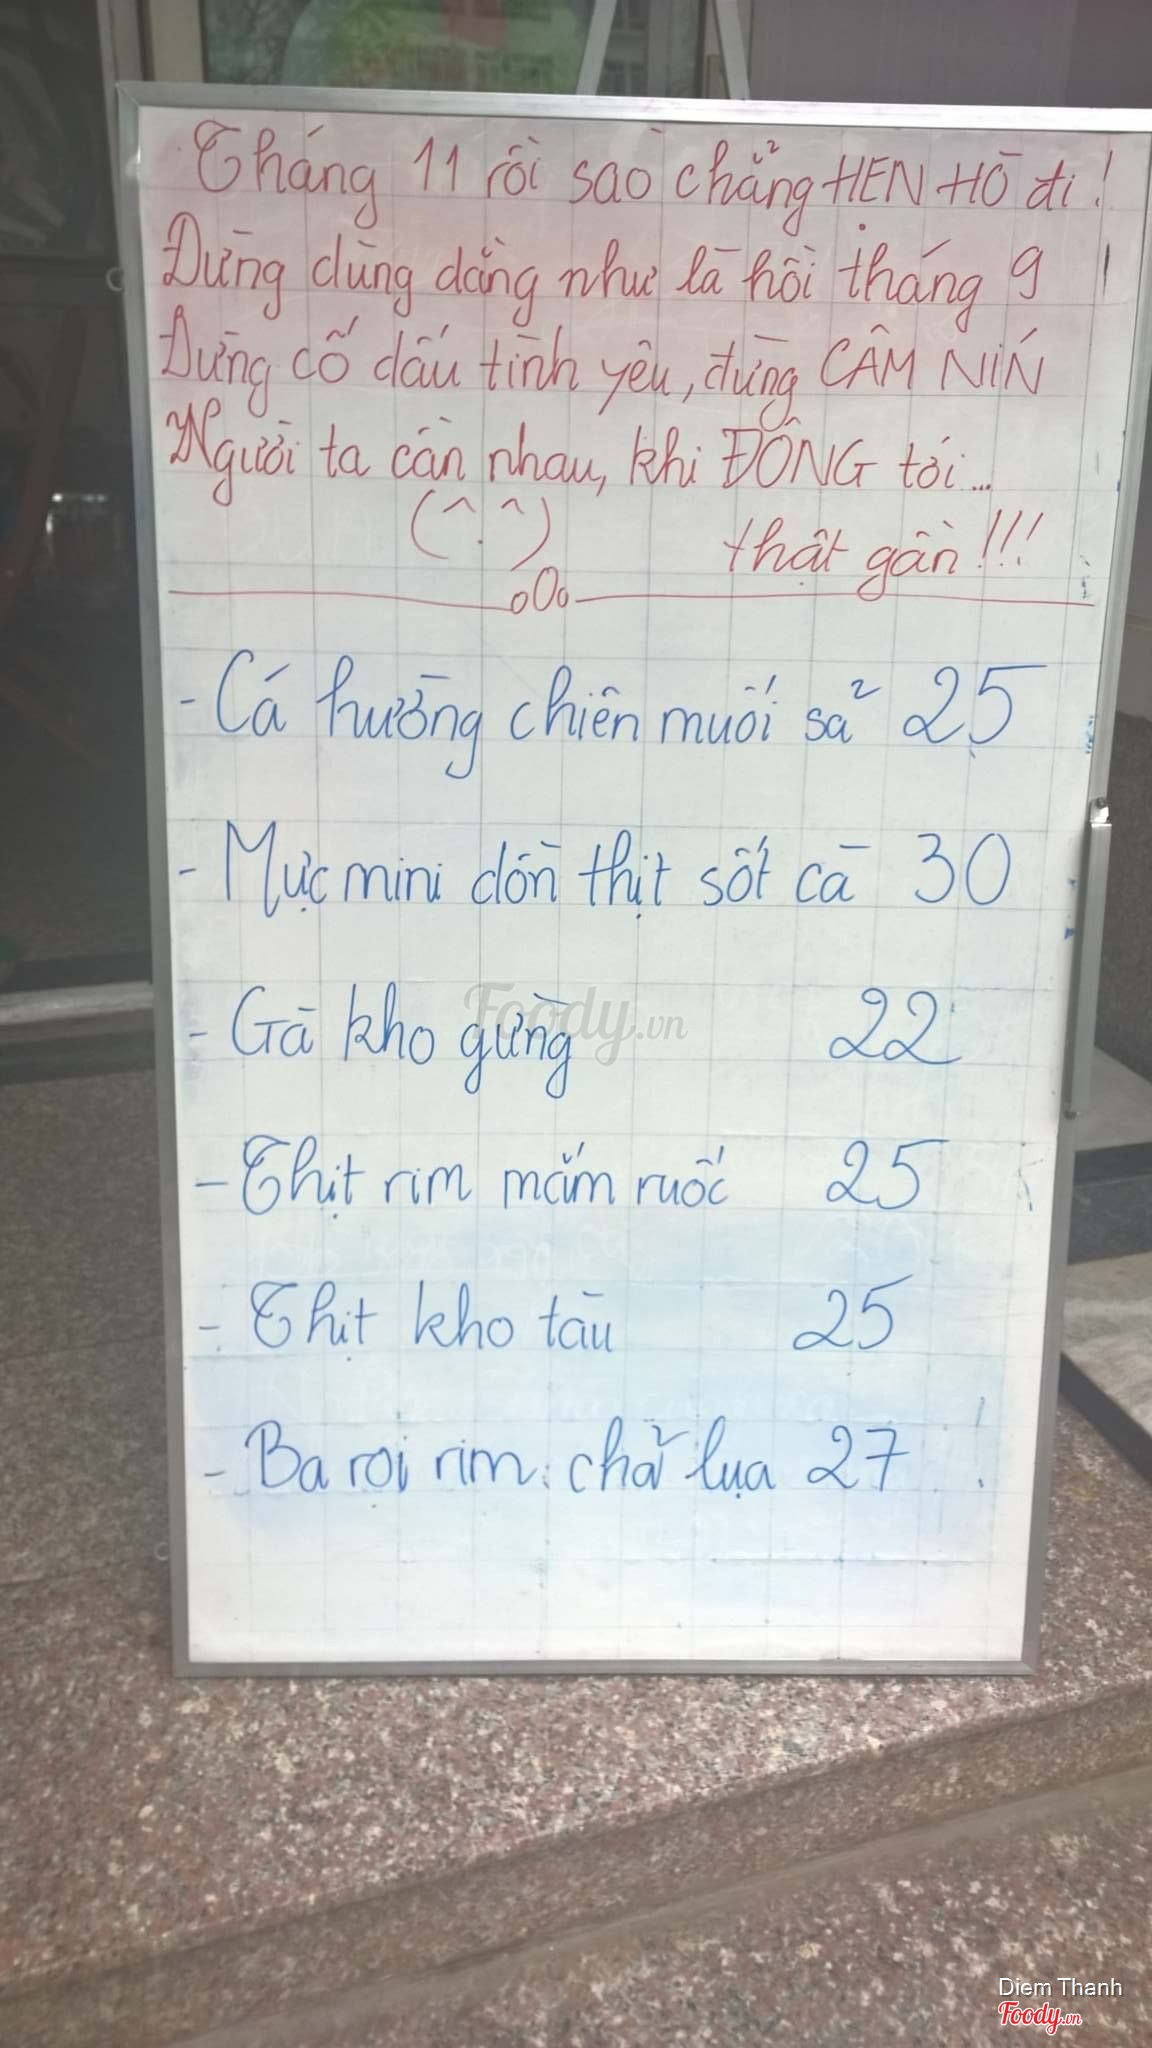 Tháng 11 rồi sao chẳng HẸN HÒ đi!
Đừng dùng dằng như là hồi tháng 9
Đừng cố dấu tình yêu, đừng CÂM NÍN
Người ta cần nhau, khi ĐÔNG tới...
(^.^) thật gần!!!
oOo
- Cá hường chiên muối sả 25
- Mực mini dồn thịt sốt cà 30
- Gà kho gừng 22
- Thịt rim mắm ruốc 25
- Thịt kho tàu 25
- Ba rọi rim chả lụa 27
Foody.vn
Diem Thanh
Foody.vn